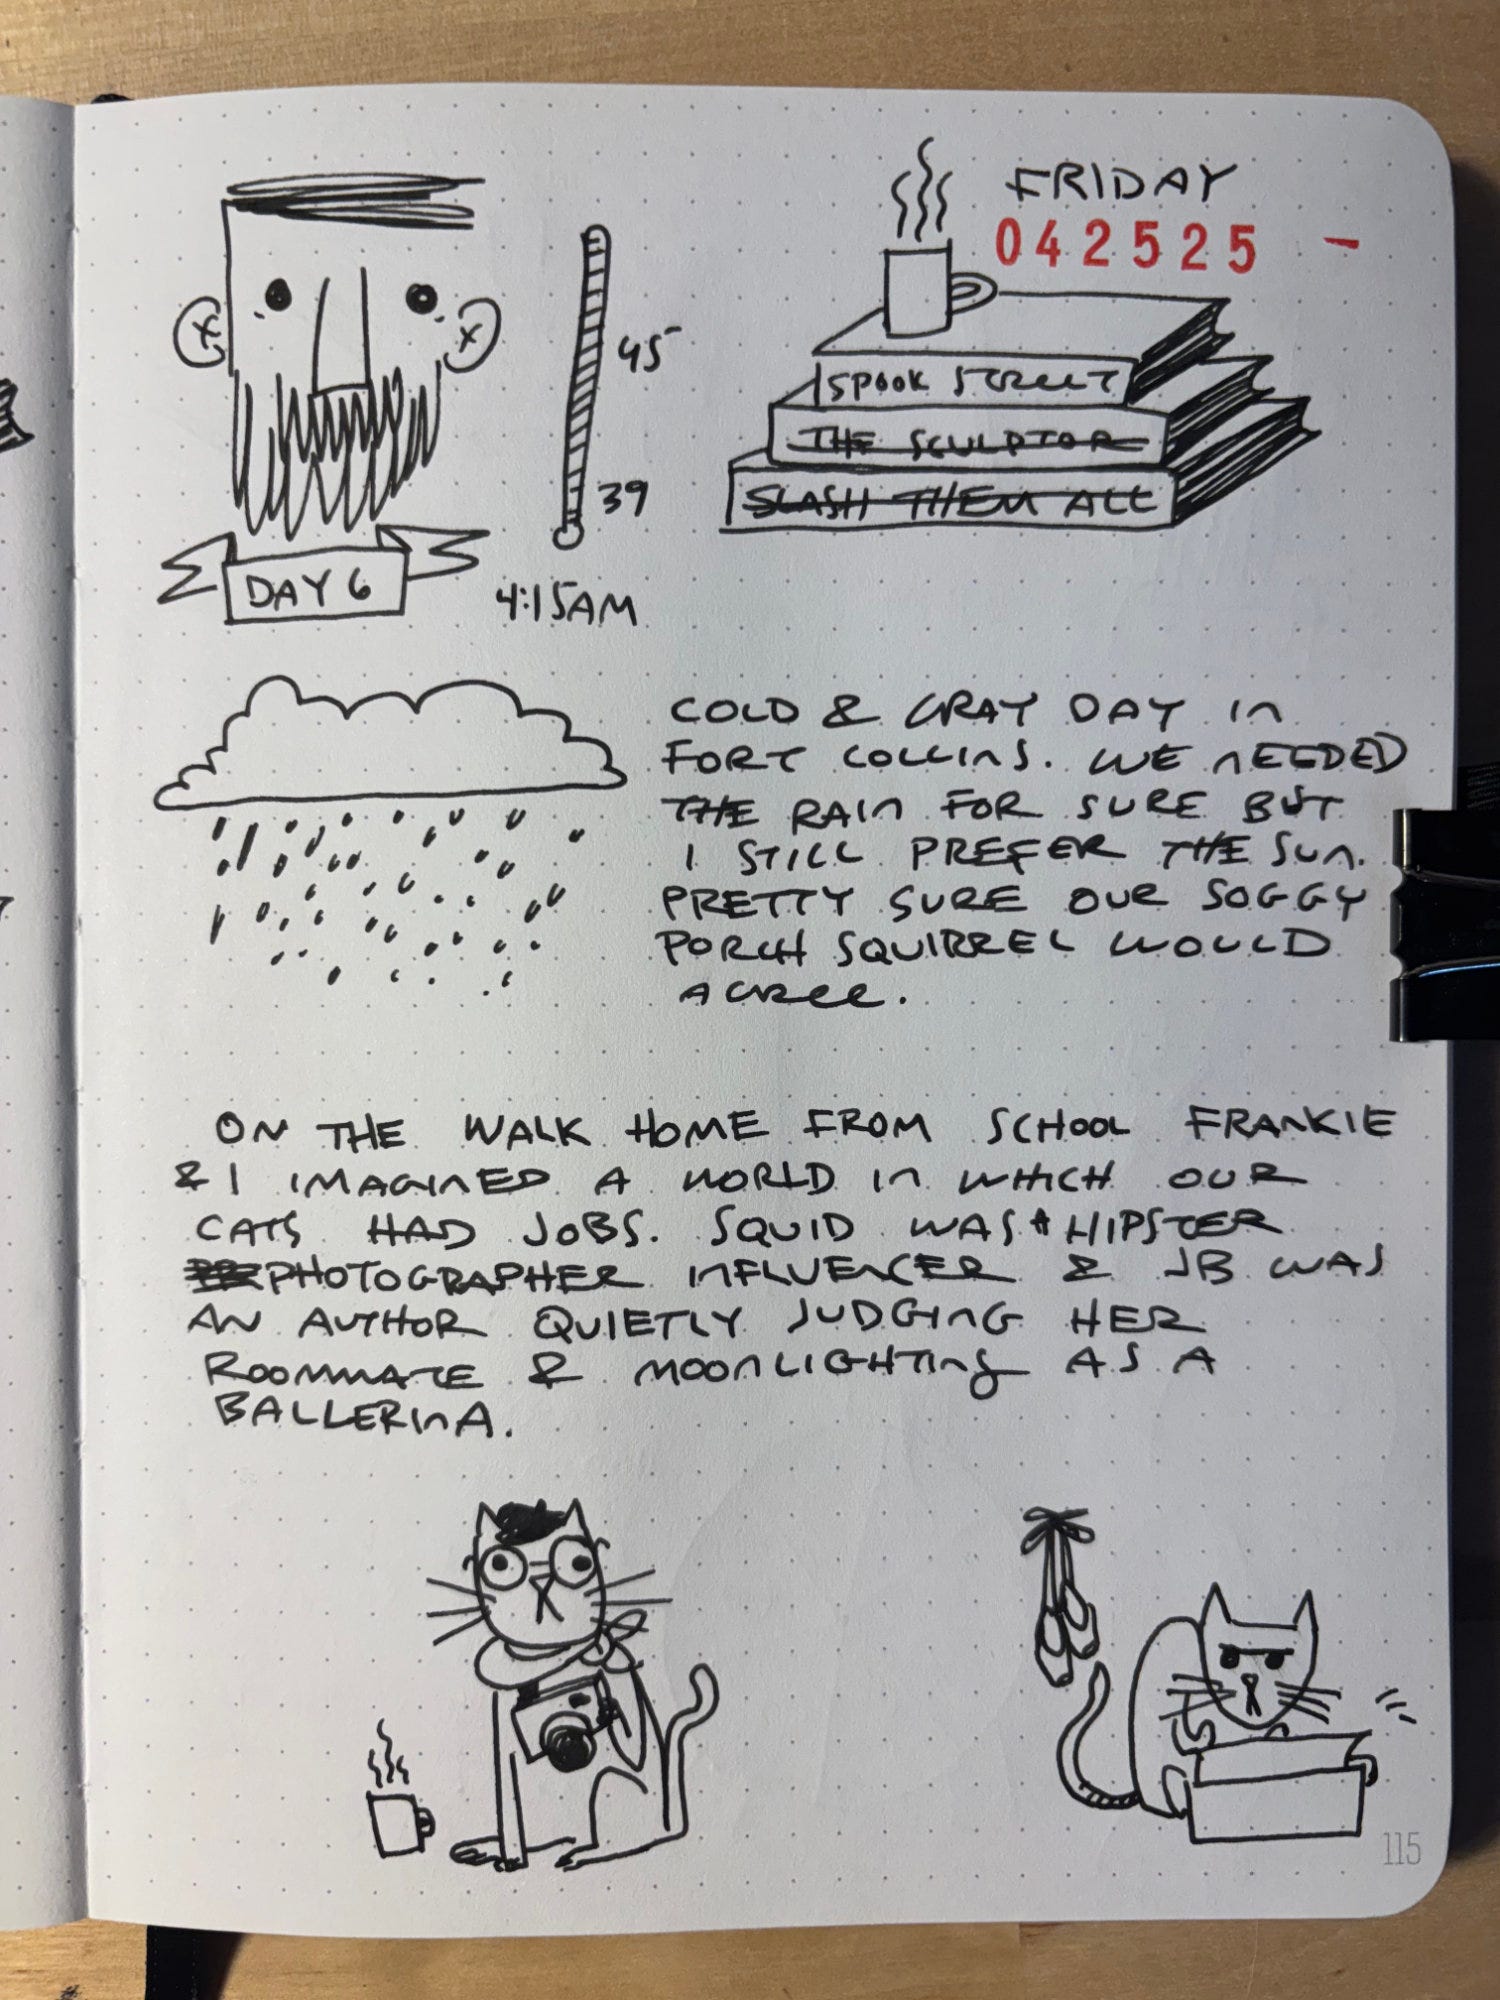 FRIDAY
042525 -
45
SPOOK STREET
THE SCULPTOR
39
SLASH THEM ALL
DAY 6
4:15AM
COLD & GRAY DAY IN
FORT COLLINS. WE NEEDED
THE RAIN FOR SURE BUT
I STILL PREFER THE SUN.
PRETTY SURE OUR SOGGY
PORCH SQUIRREL WOULD
AGREE.
ON THE WALK HOME FROM SCHOOL FRANKIE
& I IMAGINED A WORLD IN WHICH OUR
CATS HAD JOBS. SQUID WAS A HIPSTER
PHOTOGRAPHER INFLUENCER & JB WAS
AN AUTHOR QUIETLY JUDGING HER
ROOMMATE & MOONLIGHTING AS A
BALLERINA.
115